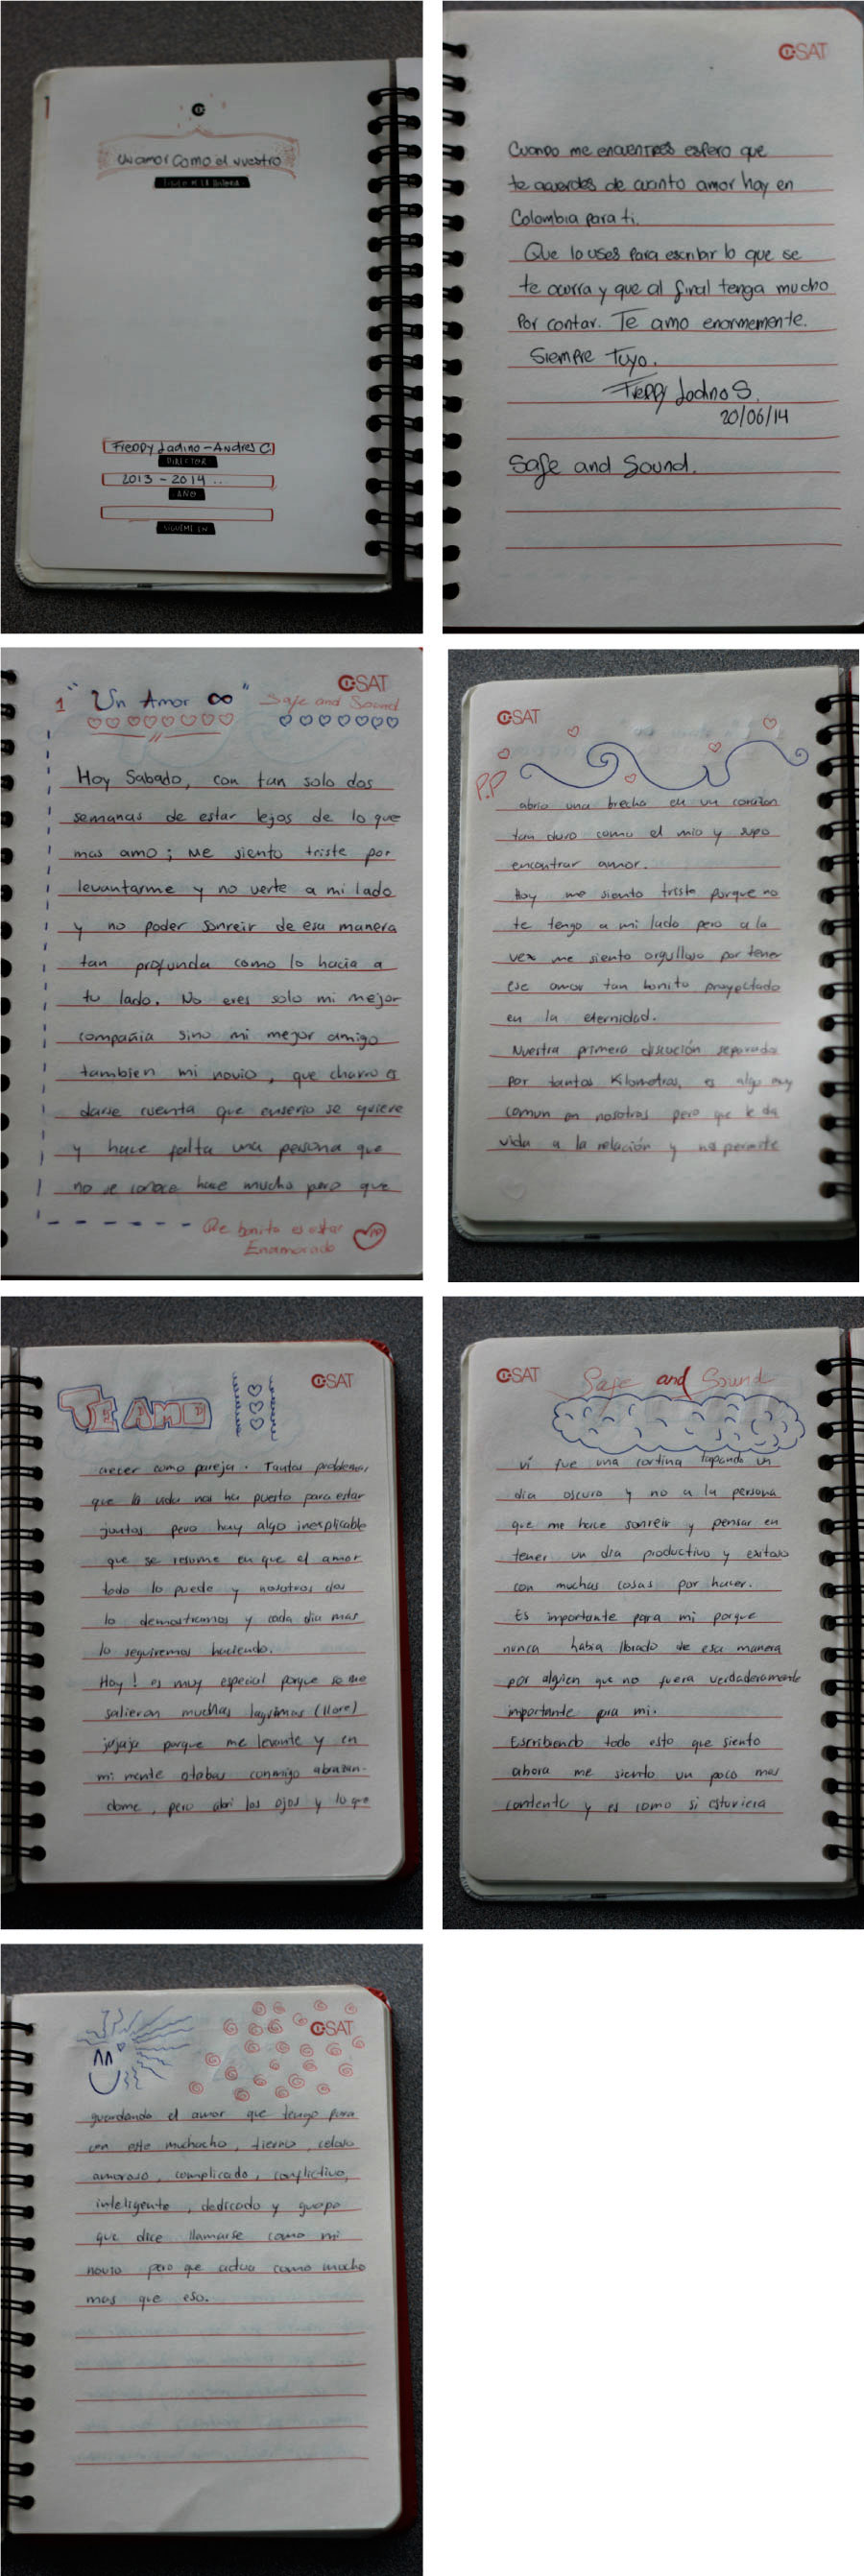 Un amor Como el nuestro
TÍTULO DE LA HISTORIA
Freddy Ladino - Andres C
DIRECTOR
2013 - 2014 ..
AÑO
SIGUEME EN
C-SAT
Cuando me encuentres espero que
te acuerdes de cuanto amor hay en
Colombia para ti.
Que lo uses para escribir lo que se
te ocurra y que al final tenga mucho
Por contar. Te amo enormemente.
Siempre Tuyo.
Freddy Ladino S.
20/06/14
Safe and Sound.
C-SAT
1 "Un Amor ∞" Safe and Sound
Hoy Sabado, con tan solo dos
semanas de estar lejos de lo que
mas amo; Me siento triste por
levantarme y no verte a mi lado
y no poder sonreir de esa manera
tan profunda como lo hacia a
tu lado. No eres solo mi mejor
compañia sino mi mejor amigo
tambien mi novio, que charro es
darse cuenta que enserio se quiere
y hace falta una persona que
no se conoce hace mucho pero que
Que bonito es estar
Enamorado
C-SAT
P.P
abrio una brecha en un corazon
tan duro como el mio y supo
encontrar amor.
Hoy me siento triste porque no
te tengo a mi lado pero a la
vez me siento orgulloso por tener
ese amor tan bonito proyectado
en la eternidad.
Nuestra primera discución separados
por tantos Kilometros, es algo muy
comun en nosotros pero que le da
vida a la relación y nos permite
TE AMO
C-SAT
crecer como pareja. Tantos problemas,
que la vida nos ha puesto para estar
juntos pero hay algo inexplicable
que se resume en que el amor
todo lo puede y nosotros dos
lo demostramos y cada dia mas
lo seguiremos haciendo.
Hoy! es muy especial porque se me
salieron muchas lagrimas (llore)
jajaja porque me levante y en
mi mente estabas conmigo abrazan-
dome, pero abri los ojos y lo que
C-SAT
Safe and Sound
vi fue una cortina tapando un
dia oscuro y no a la persona
que me hace sonreir y pensar en
tener un dia productivo y exitoso
con muchas cosas por hacer.
Es importante para mi porque
nunca habia llorado de esa manera
por alguien que no fuera verdaderamente
importante para mi.
Escribiendo todo esto que siento
ahora me siento un poco mas
contento y es como si estuviera
C-SAT
guardando el amor que tengo para
con este muchacho, tierno, celoso
amoroso, complicado, conflictivo,
inteligente, dedicado y guapo
que dice llamarse como mi
novio pero que actua como mucho
mas que eso.